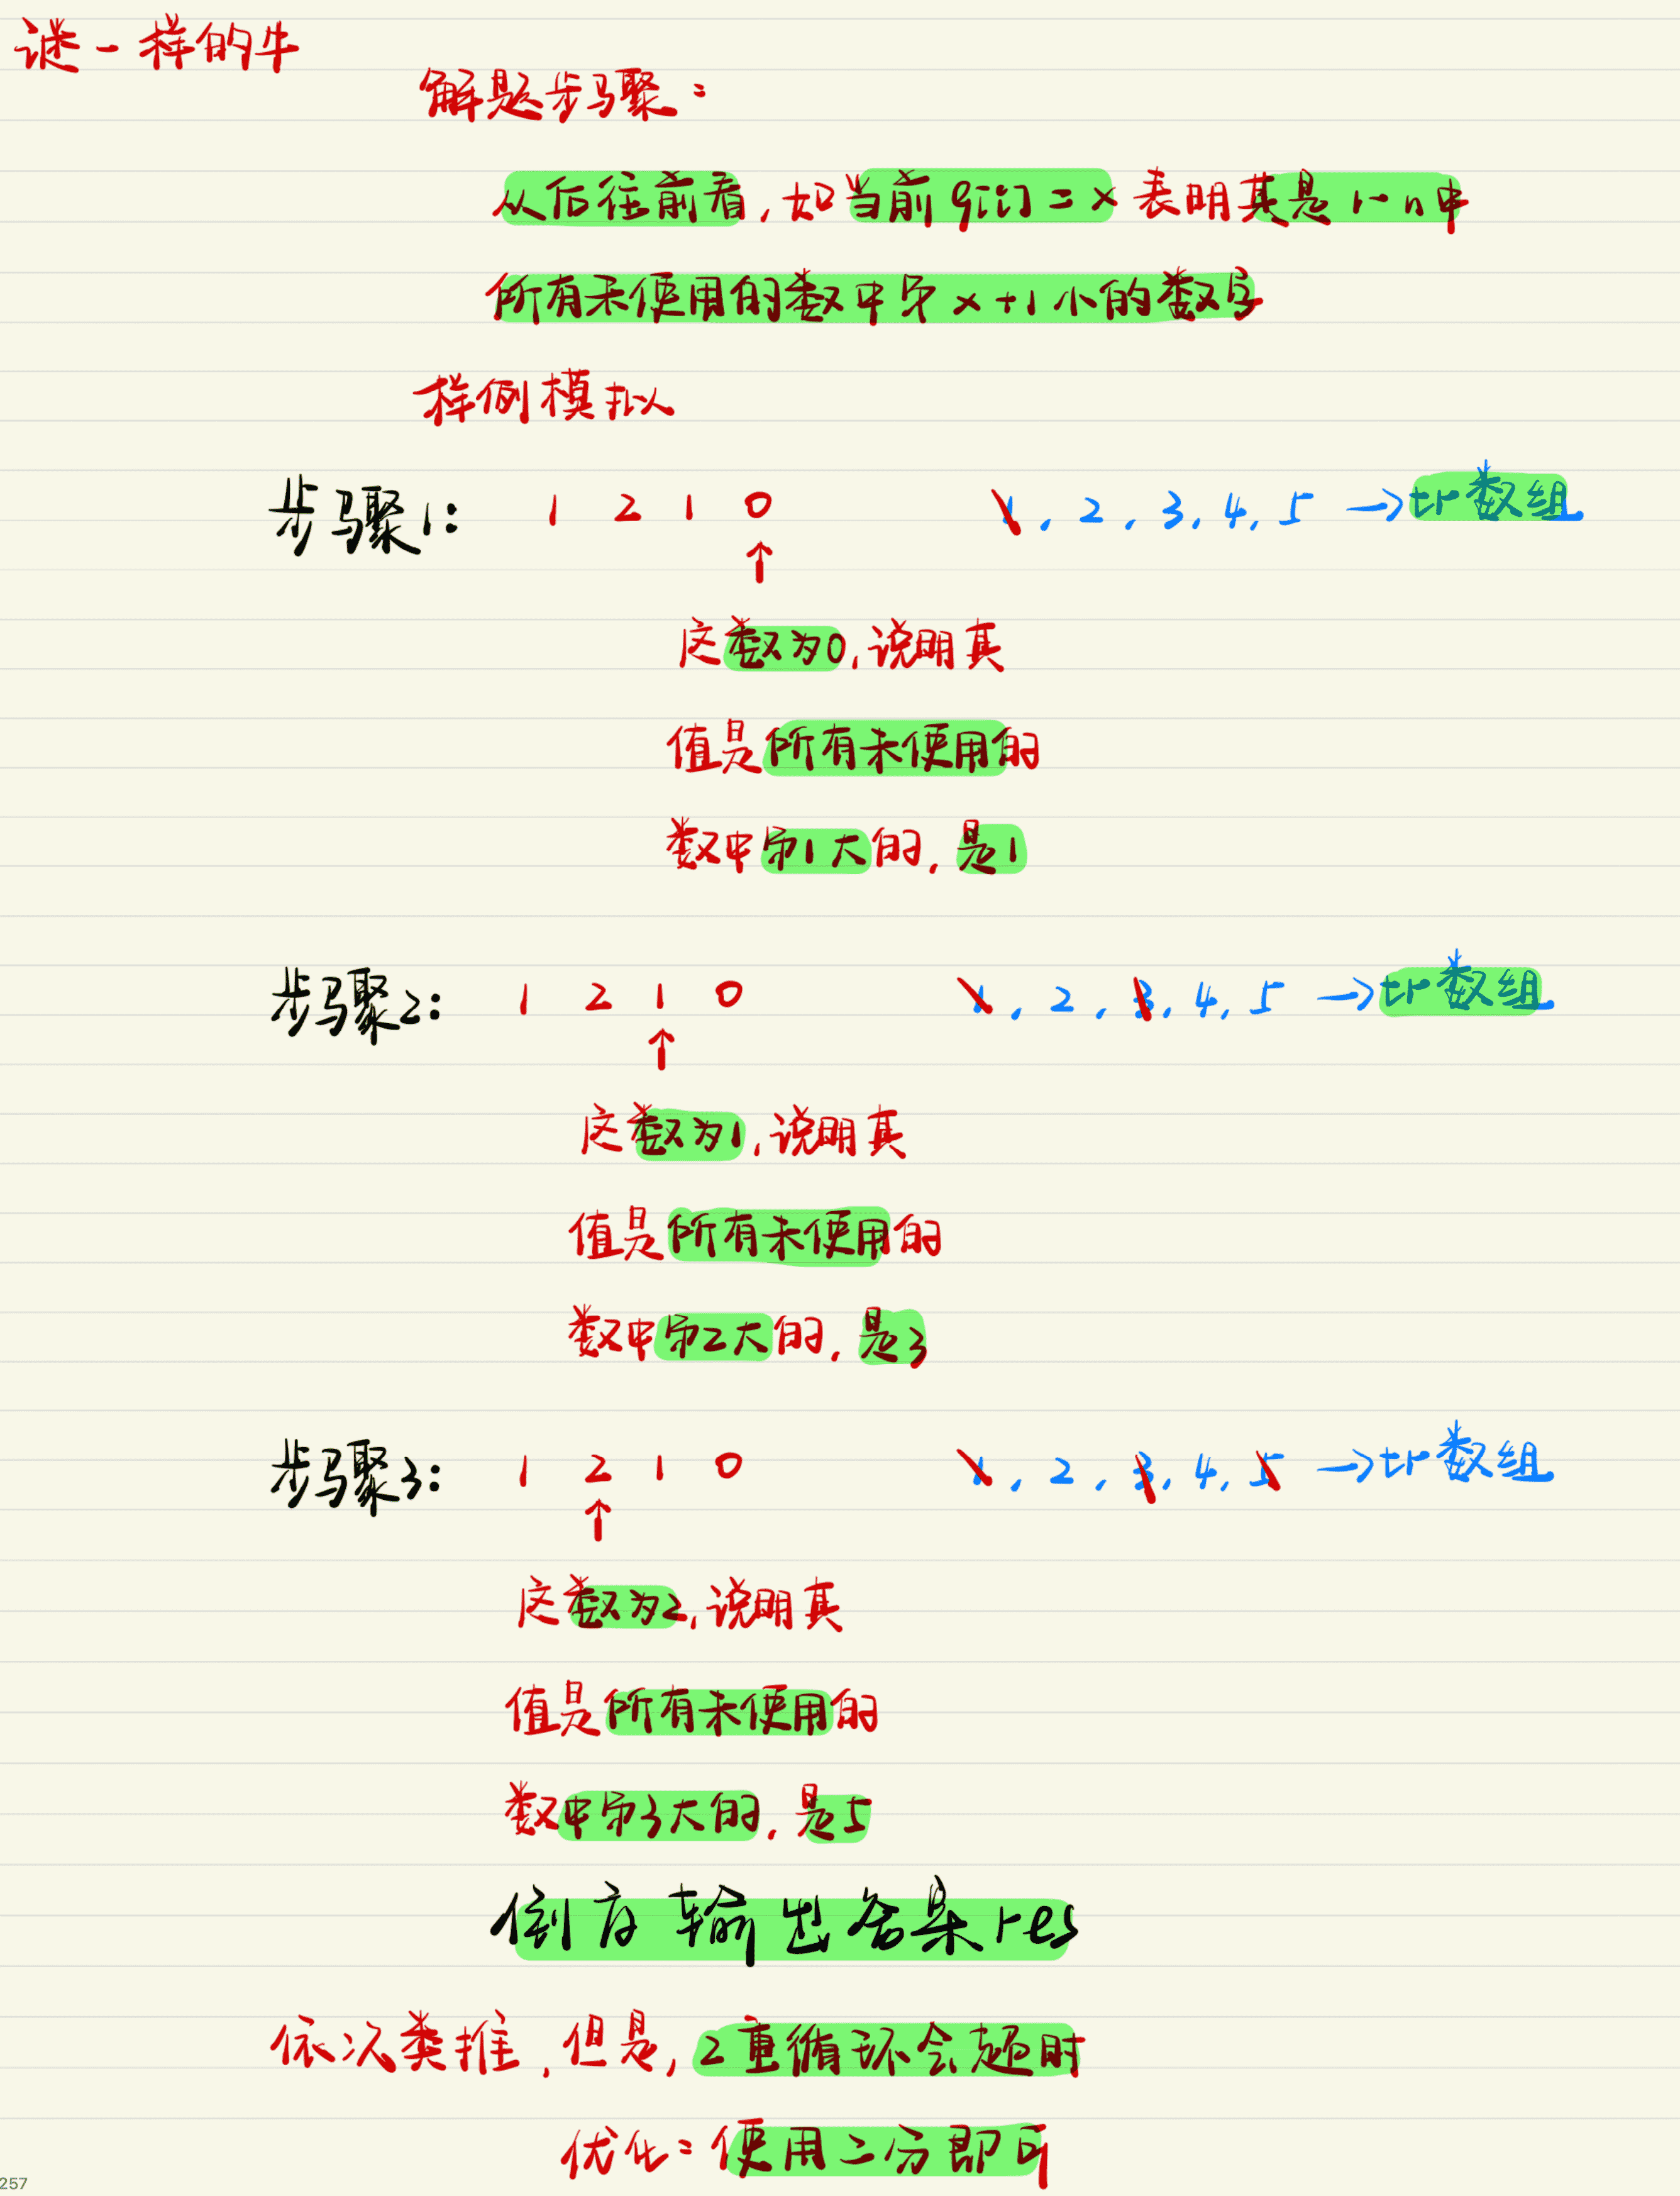 谜一样的牛
解题步骤：
从后往前看, 如当前q[i]=x 表明其是1~n中
所有未使用的数中第x+1小的数字
样例模拟
步骤1: 1 2 1 0 1, 2, 3, 4, 5 →tr数组
↑
这数为0, 说明其
值是所有未使用的
数中第1大的, 是1
步骤2: 1 2 1 0 1, 2, 3, 4, 5 →tr数组
↑
这数为1, 说明其
值是所有未使用的
数中第2大的, 是3
步骤3: 1 2 1 0 1, 2, 3, 4, 5 →tr数组
↑
这数为2, 说明其
值是所有未使用的
数中第3大的, 是5
倒序输出答案res
依次类推, 但是, 2重循环会超时
优化: 使用二分即可
257